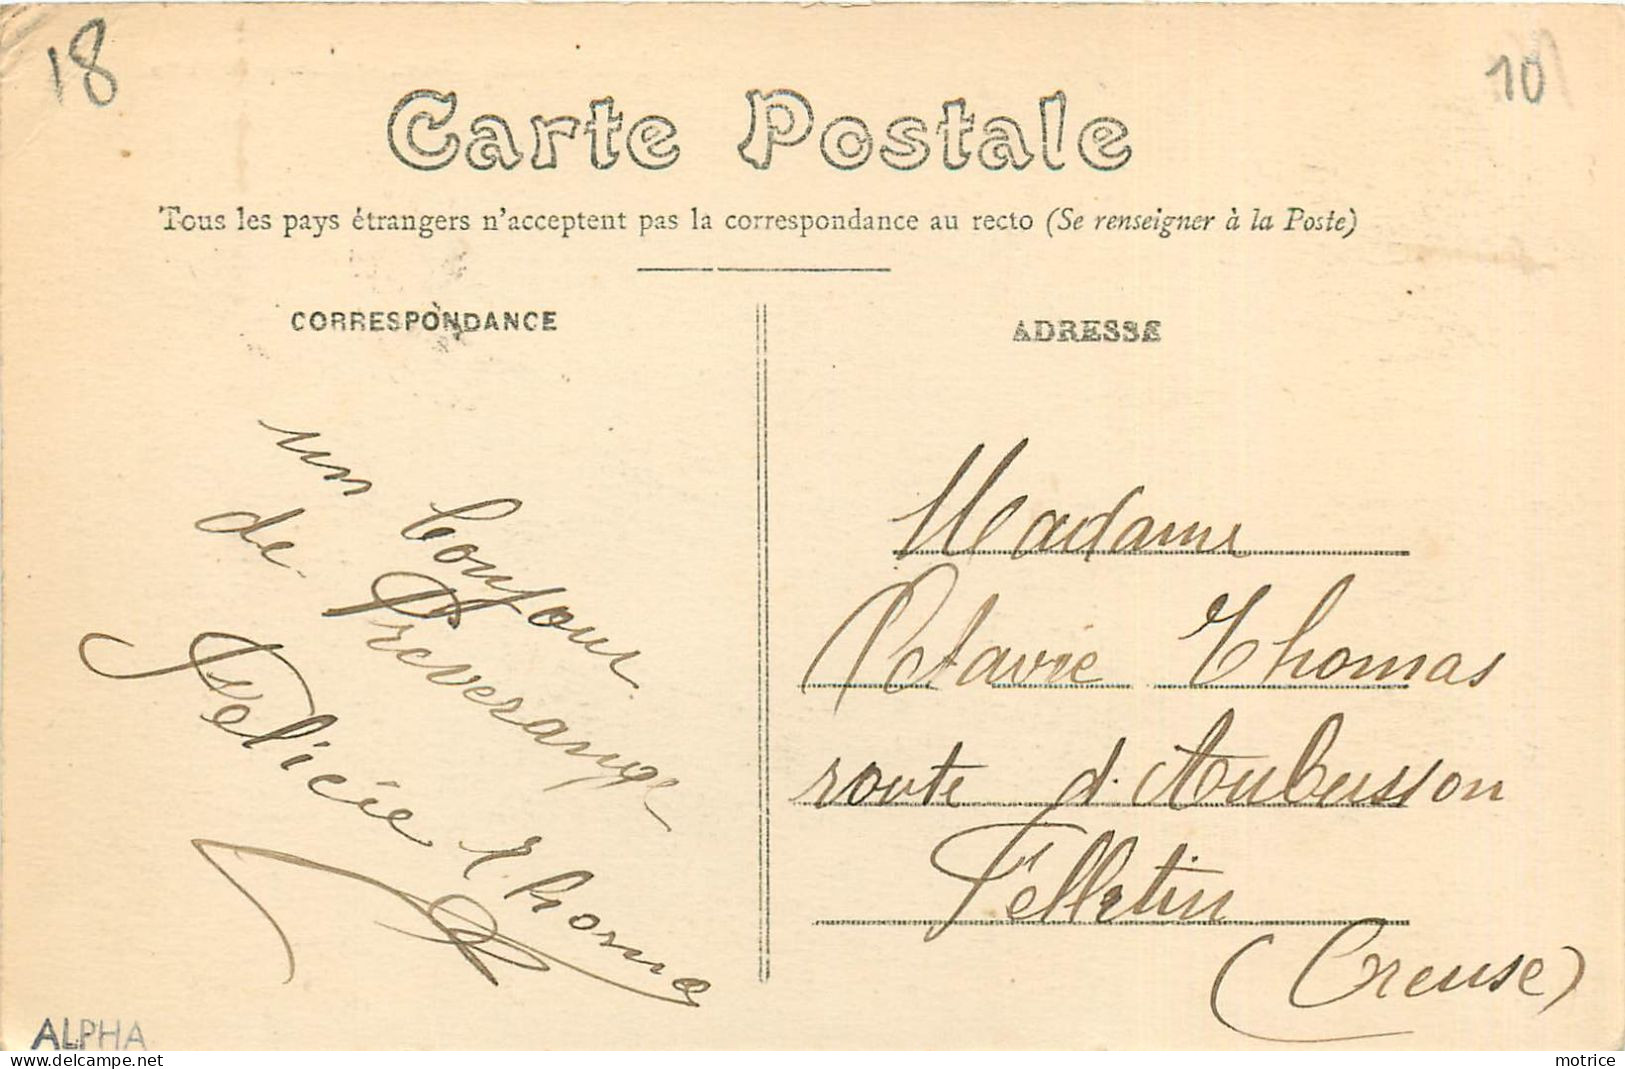 18
10
Carte Postale
Tous les pays étrangers n'acceptent pas la correspondance au recto (Se renseigner à la Poste)
CORRESPONDANCE
un bonjour
de Preveranges
Félicie Thomas
ADRESSE
Madame
Octavie Thomas
route d'Aubusson
Felletin
(Creuse)
ALPHA
delcampe.net
motrice